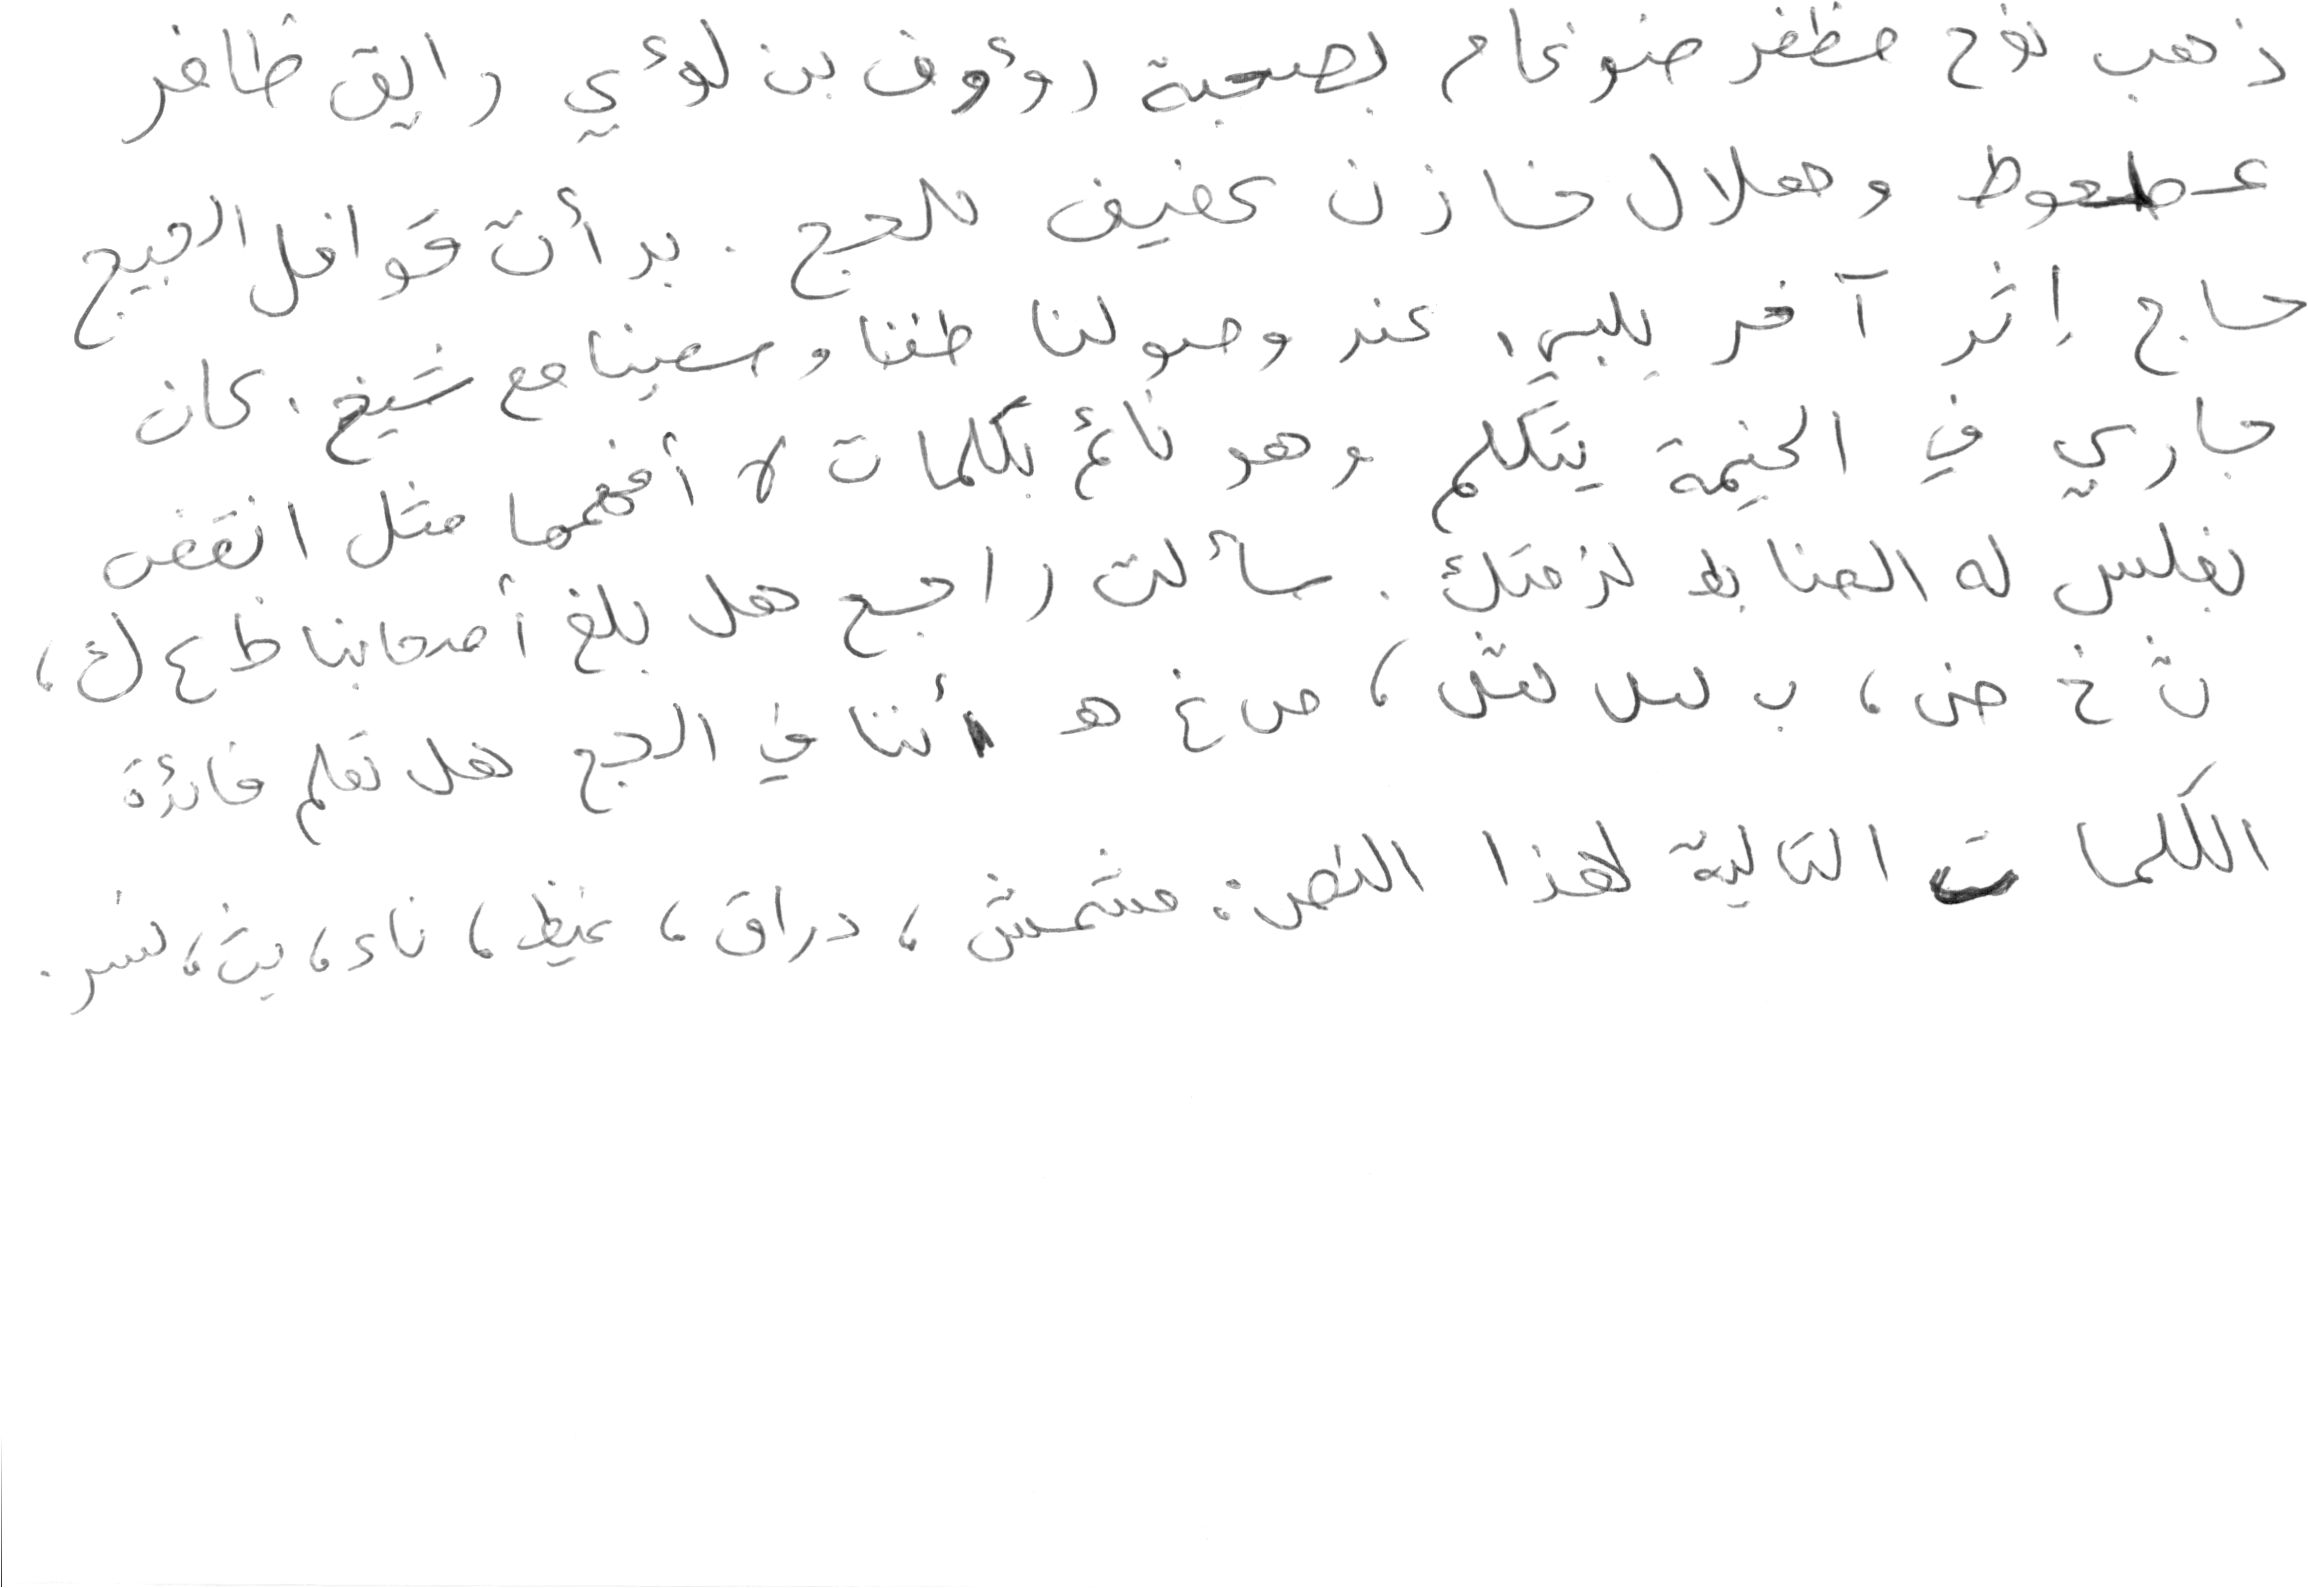 ذهب نوح مظفر ضنوغام بصحبة رووؤف بن لؤي رايق ظافر
عطعوط وهلال خازن عفيف للحج . بدأت قوافل الحجيج
حاج إثر آخر يلبي. عند وصولنا طفنا وسعينا مع شيخ. كان
جاري في الخيمة يتكلم وهو نائم بكلمات لا أفهمها مثل انقض
نغلس له الضابط لزمتك . سألت راجح هل بلغ أصحابنا ظ ء ك،
ث خ ض، ب سس هش، ص غ هـ أننا في الحج هل تعلم فائدة
الكلمات التالية لهذا النص: مشمش، دراق، غيظ، ناء، بث، نسر.